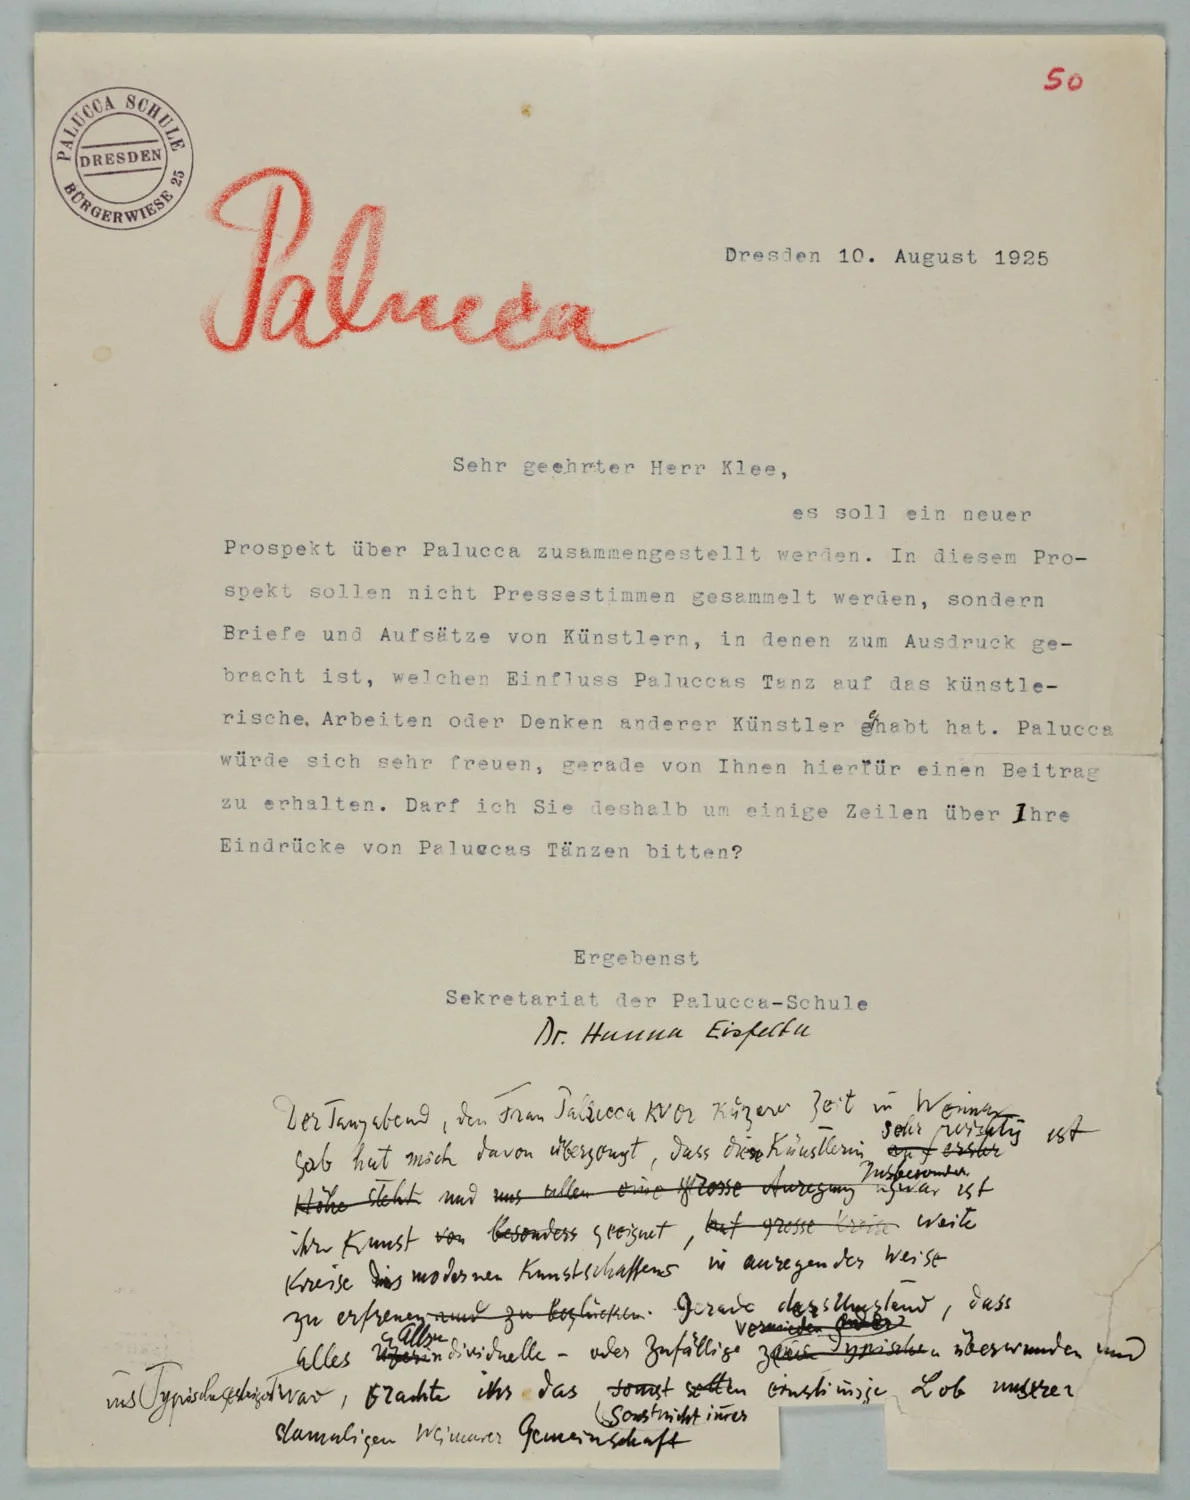 50
PALUCCA SCHULE
DRESDEN
BÜRGERWIESE 25
Palucca
Dresden 10. August 1925
Sehr geehrter Herr Klee,
es soll ein neuer
Prospekt über Palucca zusammengestellt werden. In diesem Pro-
spekt sollen nicht Pressestimmen gesammelt werden, sondern
Briefe und Aufsätze von Künstlern, in denen zum Ausdruck ge-
bracht ist, welchen Einfluss Paluccas Tanz auf das künstle-
rische. Arbeiten oder Denken anderer Künstler gehabt hat. Palucca
würde sich sehr freuen, gerade von Ihnen hierfür einen Beitrag
zu erhalten. Darf ich Sie deshalb um einige Zeilen über Ihre
Eindrücke von Paluccas Tänzen bitten?
Ergebenst
Sekretariat der Palucca-Schule
Dr. Hanna
Der Tanzabend, den Frau Palucca vor Zeit in Weimar
sehr wichtig ist
gab hat mich davon überzeugt, dass die Künstlerin auf erster
Insbesondere
Höhe steht und uns allen eine grosse Anregung war ist
ihre Kunst von besonders geeignet, hat grosse Kreise weite
Kreise des modernen Kunstschaffens in anregender Weise
zu erfreuen und zu beglücken. Gerade der Umstand, dass
allzu
alles individuelle - oder Zufällige vermieden oder
Typische überwunden und
ins Typische gesteigert war, brachte ihr das sonst selten einstimmige Lob unserer
sonst nicht
damaligen Weimarer Gemeinschaft